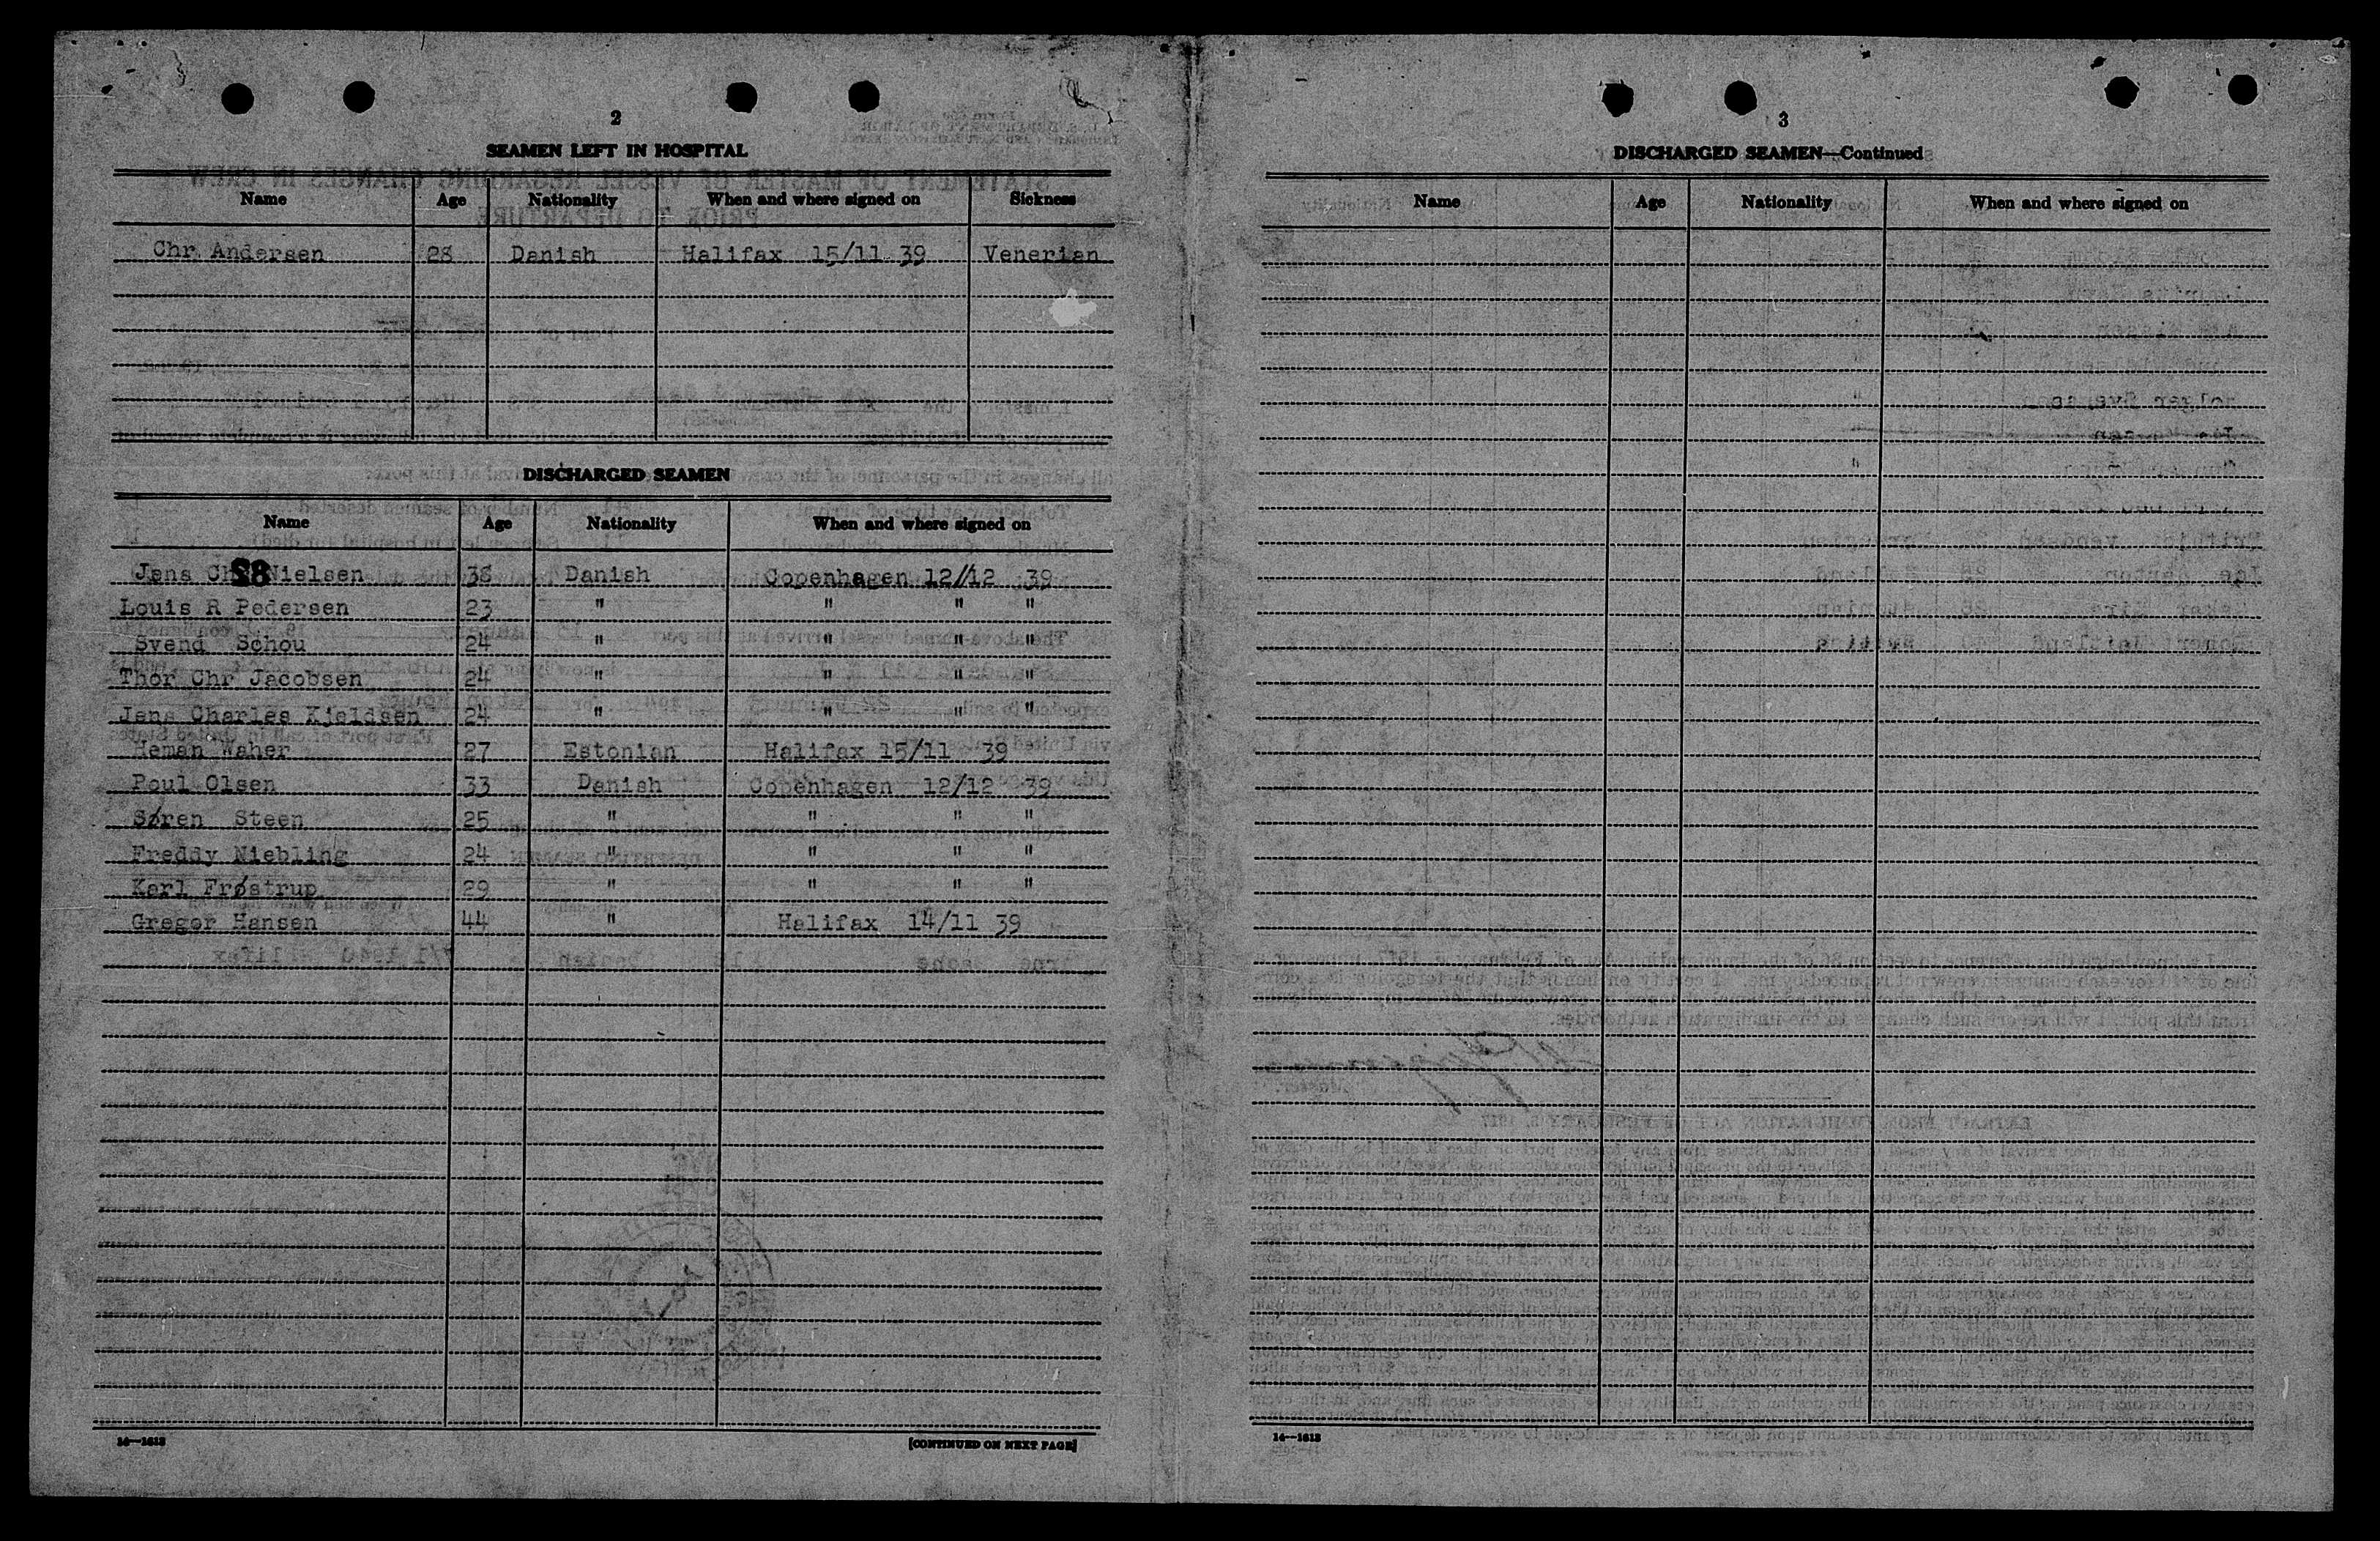 2
SEAMEN LEFT IN HOSPITAL
Name Age Nationality When and where signed on Sickness
Chr Andersen 28 Danish Halifax 15/11 39 Venerian
DISCHARGED SEAMEN
Name Age Nationality When and where signed on
Jens Chr Nielsen 38 Danish Copenhagen 12/12 39
88
Louis R Pedersen 23 " " " "
Svend Schou 24 " " " "
Thor Chr Jacobsen 24 " " " "
Jens Charles Kjeldsen 24 " " " "
Heman Waher 27 Estonian Halifax 15/11 39
Poul Olsen 33 Danish Copenhagen 12/12 39
Søren Steen 25 " " " "
Freddy Niebling 24 " " " "
Karl Frøstrup 29 " " " "
Gregor Hansen 44 " Halifax 14/11 39
14—1613 [CONTINUED ON NEXT PAGE]
3
DISCHARGED SEAMEN—Continued
Name Age Nationality When and where signed on
14—1613